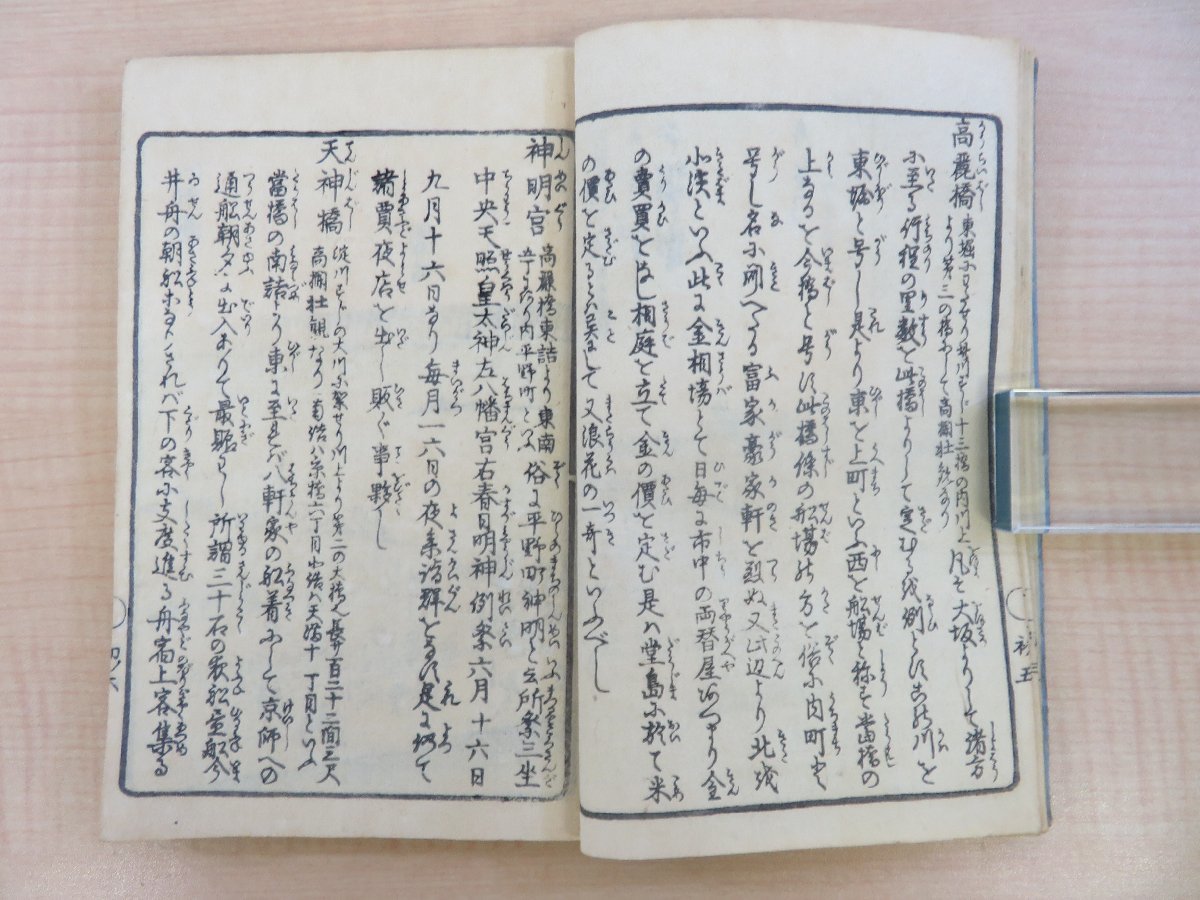 高麗橋 東堀にわたせり橋川すじ十三橋の内川上より第三の橋にして高欄壮観なり 凡そ大坂よりして諸方
に至る行程の里数を此橋よりして定むるを例とす此川を
東堀と号し是より東を上町といふ西を船場と称す当橋の
上なるを今橋と号す此橋條の船場の方を俗に内町とて
号し名に聞へたる富家豪家軒を烈ぬ又此辺より北を
北浜といふ此に金相場とて日毎に市中の両替屋あつまり金
の賣買をなし相庭を立て金の價を定む是ハ堂島に於て米
の價を定ると異にして又浪花の一奇といふべし
神明宮 高麗橋東詰より東南 内平野町といふ 俗に平野町神明と云所祭三坐
中央天照皇太神左八幡宮右春日明神例祭六月十六日
九月十六日なり毎月一六日の夜参詣群をなす是に仍て
諸賣夜店を出し賑ふ事夥し
天神橋 淀川すじの大川に架せり川上より第二の大橋也長サ百二十二間三尺高欄壮観なり南詰ハ京橋六丁目北詰ハ天満十丁目といふ
當橋の南詰より東に至れバ八軒家の船着にして京師への
通船朝夕に出入ありて最賑はし所謂三十石の夜船昼船今
井舟の朝船あり されバ下の客に支度進る舟宿上客集る